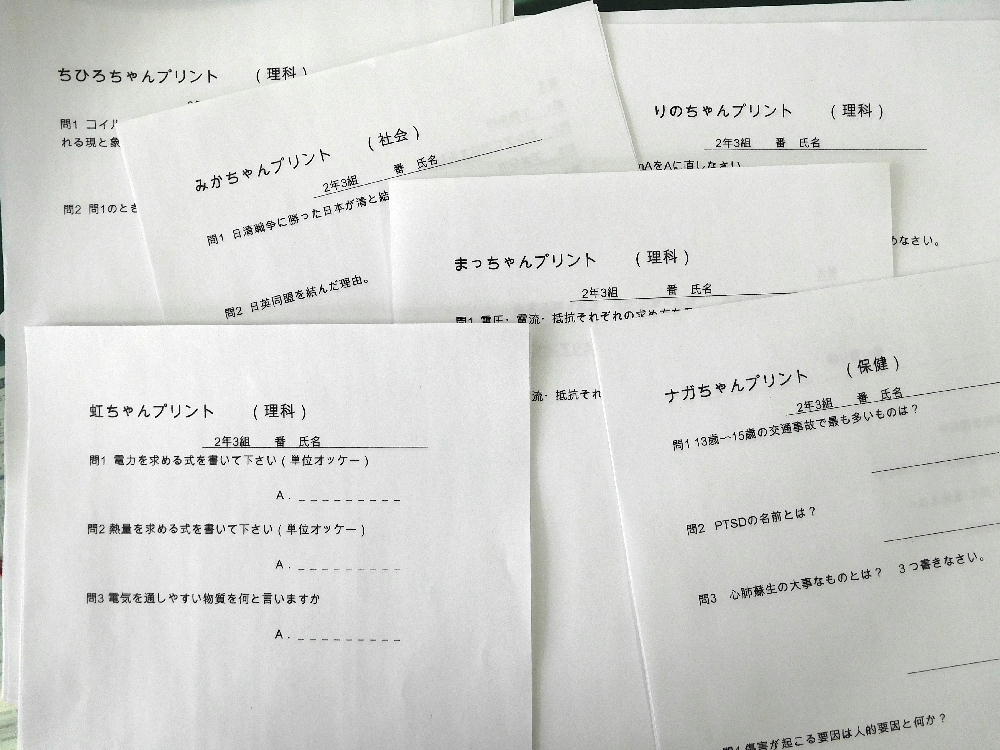 ちひろちゃんプリント (理科)
問1 コイル
れる現と象
問2 問1のとき
みかちゃんプリント (社会)
2年3組 番 氏名
問1 日清戦争に勝った日本が清と結
問2 日英同盟を結んだ理由。
りのちゃんプリント (理科)
2年3組 番 氏名
mAをAに直しなさい
めなさい。
まっちゃんプリント (理科)
2年3組 番 氏名
問1 電圧・電流・抵抗それぞれの求め方を
流・抵抗それ
虹ちゃんプリント (理科)
2年3組 番 氏名
問1 電力を求める式を書いて下さい(単位オッケー)
A. _ _ _ _ _ _ _ _ _
問2 熱量を求める式を書いて下さい(単位オッケー)
A. _ _ _ _ _ _ _ _ _
問3 電気を通しやすい物質を何と言いますか
A. _ _ _ _ _ _ _ _ _
ナガちゃんプリント (保健)
2年3組 番 氏名
問1 13歳~15歳の交通事故で最も多いものは?
問2 PTSDの名前とは?
問3 心肺蘇生の大事なものとは? 3つ書きなさい。
問4 傷害が起こる要因は人的要因と何か?